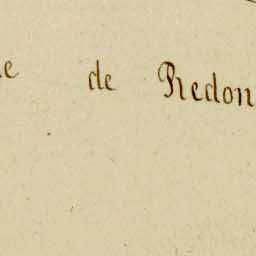 de Redon